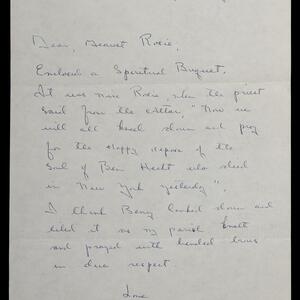 Dear, Dearest Rosie,
Enclosed a Spiritual Buquet.
It was nice Rosie, when the priest
said from the altar, "Now we
will all kneel down and pray
for the Happy repose of the
Soul of Ben Hecht who died
in New York yesterday".
I think Benny looked down and
liked it as my parish knelt
and prayed with bended knees
in due respect
Love